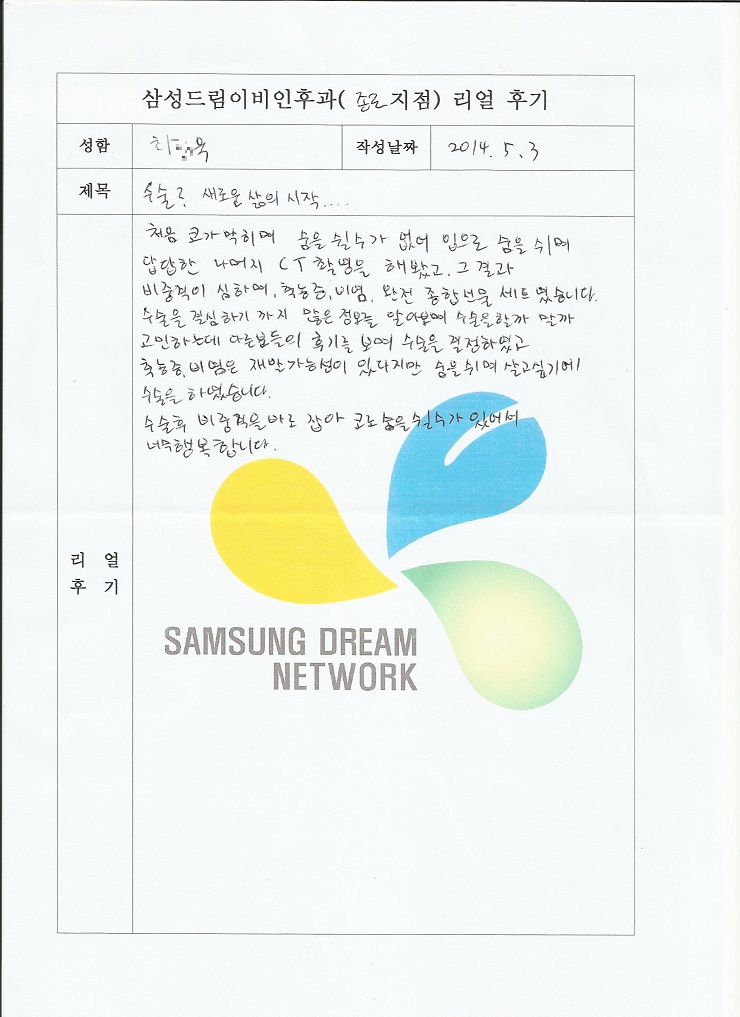 삼성드림이비인후과( 종로 지점) 리얼 후기
성함 최 욱 작성날짜 2014. 5. 3
제목 수술? 새로운 삶의 시작....
처음 코가막히며 숨을 쉴수가 없어 입으로 숨을 쉬며
답답한 나머지 CT촬영을 해봤고, 그 결과
비중격이 심하며, 축농증, 비염, 완전 종합선물 세트였습니다.
수술을 결심하기 까지 많은 정보를 알아보며 수술을할까 말까
고민하는데 다른분들이 후기를 보며 수술을 결전하였고
축농증, 비염은 재발가능성이 있다지만 숨을쉬며 살고싶기에
수술을 하였습니다.
수술후 비중격을 바로 잡아 코로 숨을 쉴수가 있어서
너무행복합니다.
리 얼
후 기
SAMSUNG DREAM
NETWORK